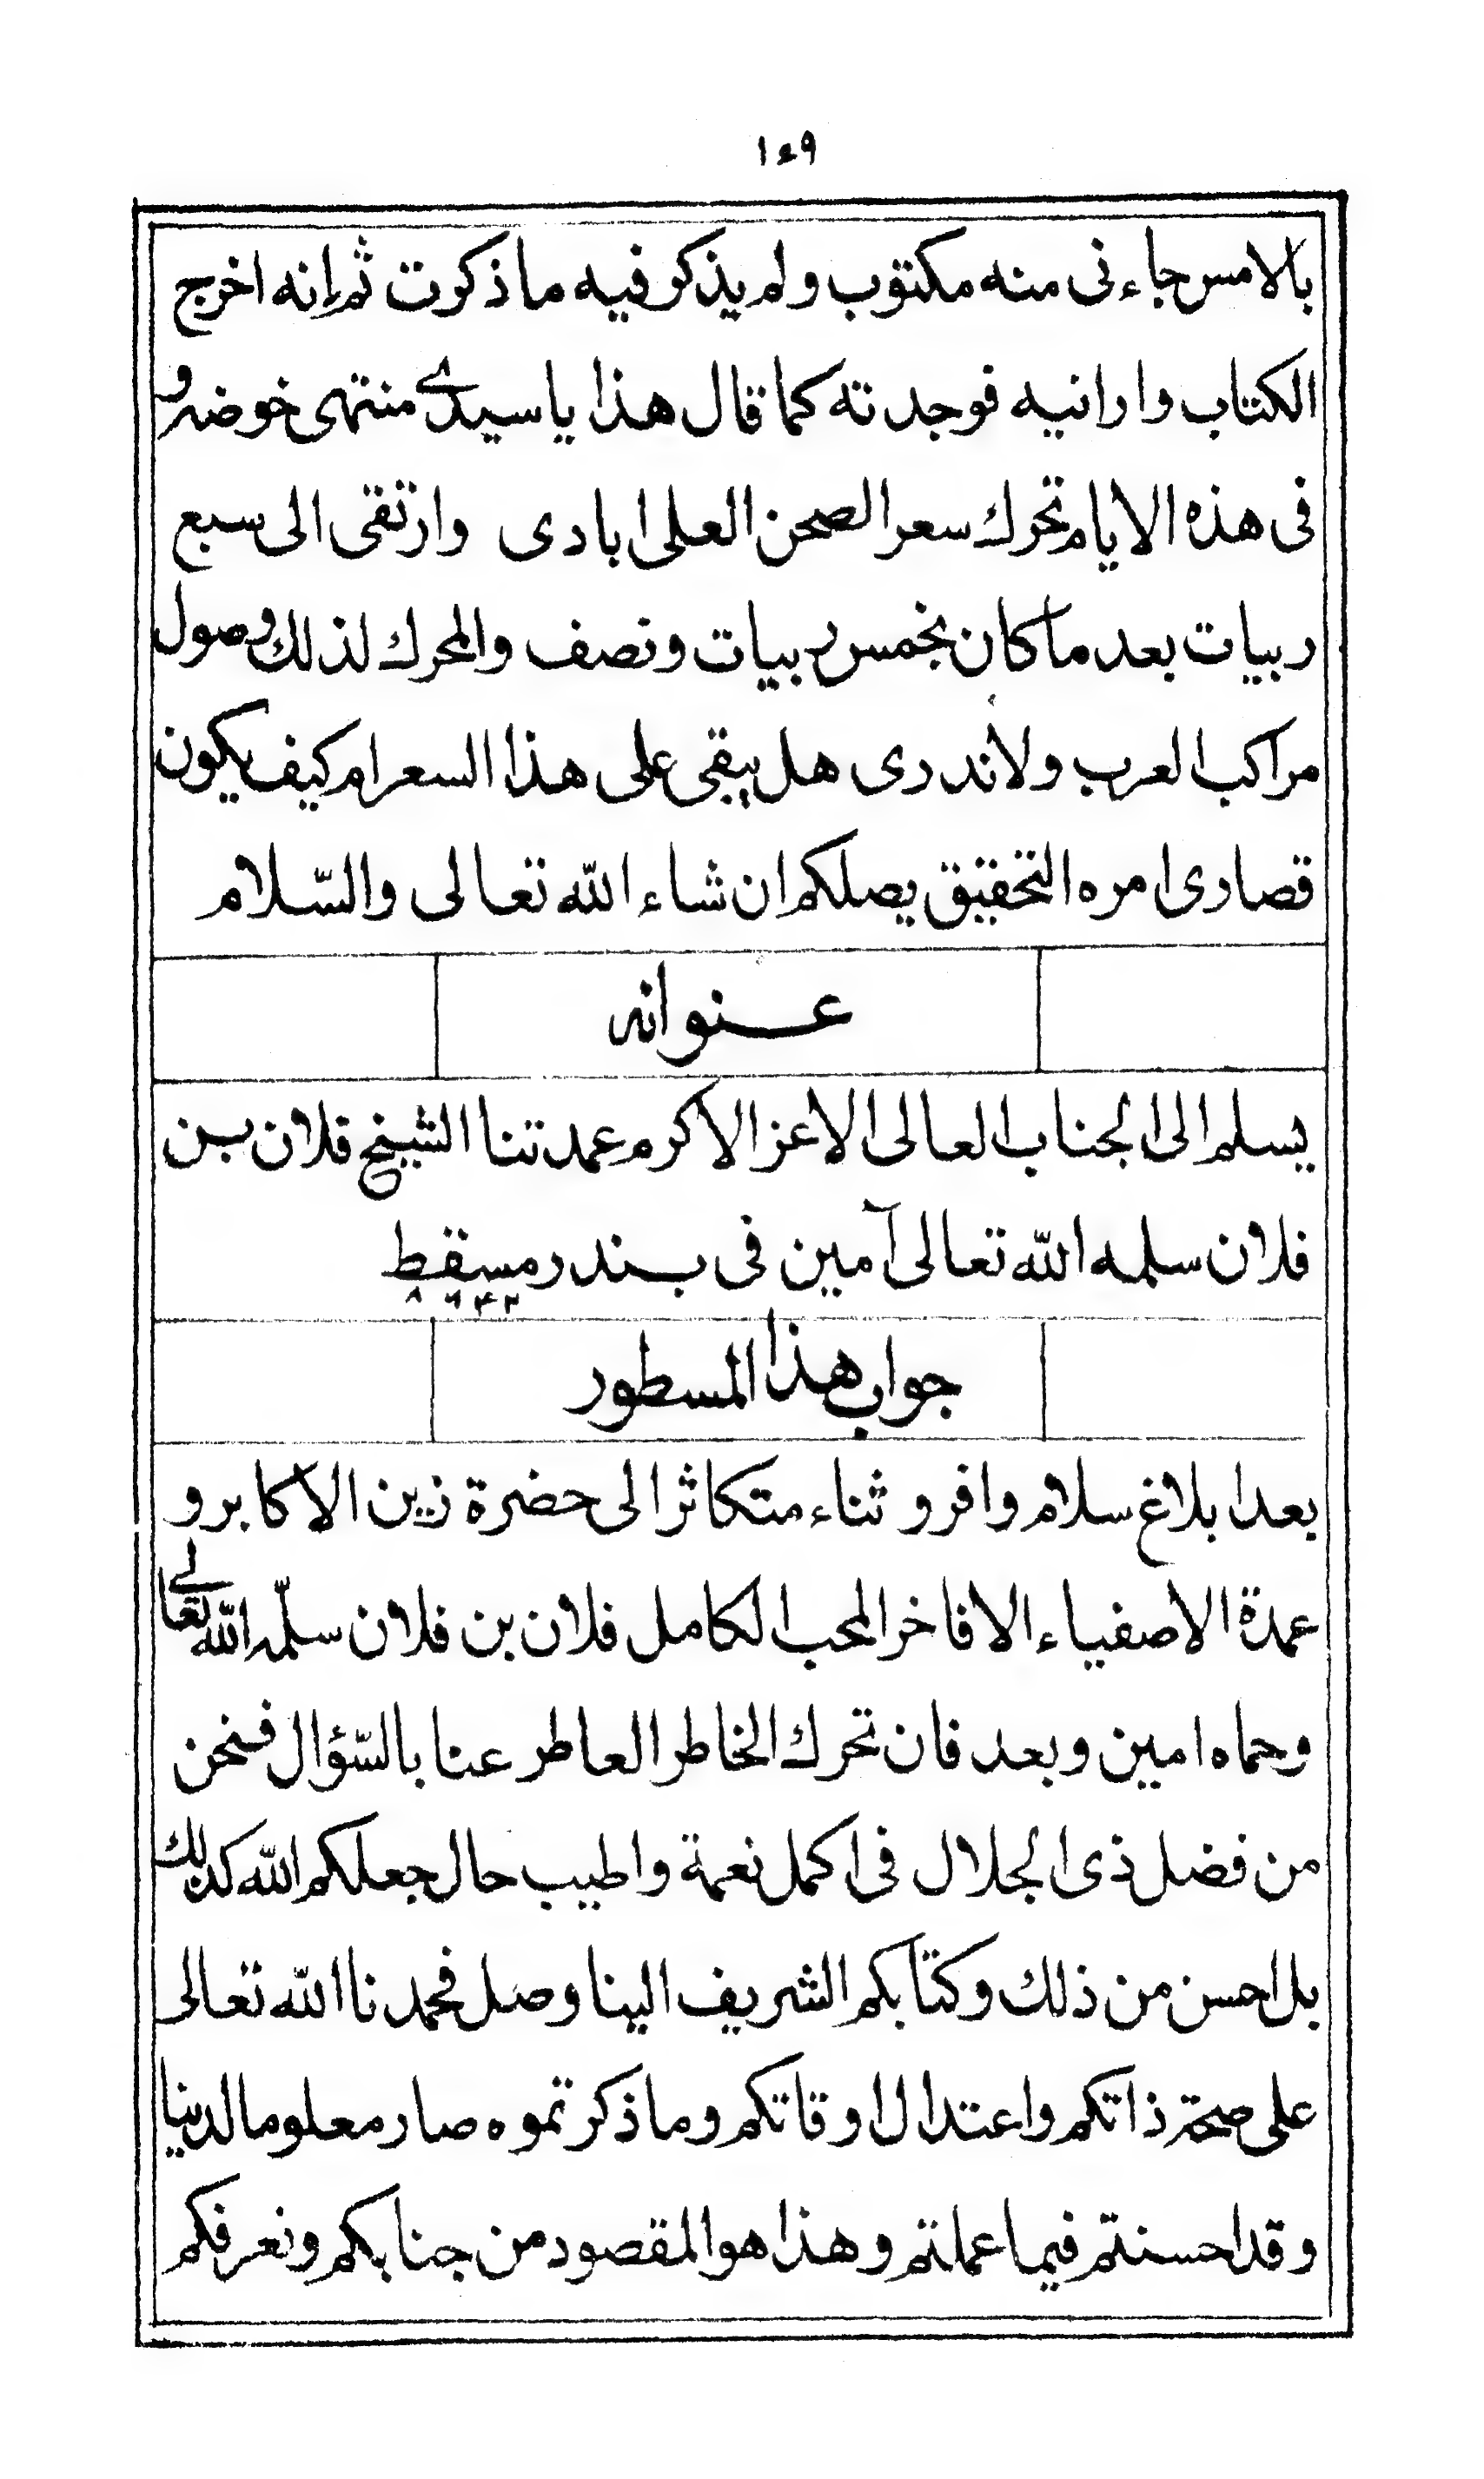 ١٤٩
بالامس جاءنى منه مكتوب ولم يذكر فيه ما ذكرت ثم إنه اخرج
الكتاب وارانيه فوجدته كما قال هذا يا سيدى منتهى خوضه و
فى هذه الايام تحرك سعر الصحن العلى ابادى وارتقى الى سبع
ربيات بعد ما كان بخمس ربيات ونصف والمحرك لذلك وصول
مراكب العرب ولاندرى هل يبقى على هذا السعر ام كيف يكون
قصارى امره التحقيق يصلكم ان شاء الله تعالى والسّلام
عنوانه
يسلم الى الجناب العالى الاعز الاكرم عمدتنا الشيخ فلان بن
فلان سلمه الله تعالى آمين فى بندر مسقط
٨٦٤٢
جواب هذا المسطور
بعد ابلاغ سلام وافر و ثناء متكاثر الى حضرة زين الاكابر و
عمدة الاصفياء الافاخر المحب الكامل فلان بن فلان سلّمه الله تعالى
وحماه امين وبعد فان تحرك الخاطر العاطر عنا بالسّؤال فنحن
من فضل ذى الجلال فى اكمل نعمة واطيب حال جعلكم الله كذلك
بل احسن من ذلك وكتابكم الشريف الينا وصل فحمدنا الله تعالى
على صحة ذاتكم واعتدال اوقاتكم وما ذكرتموه صار معلوما لدينا
وقد احسنتم فيما عملتم وهذا هو المقصود من جنابكم ونعرفكم